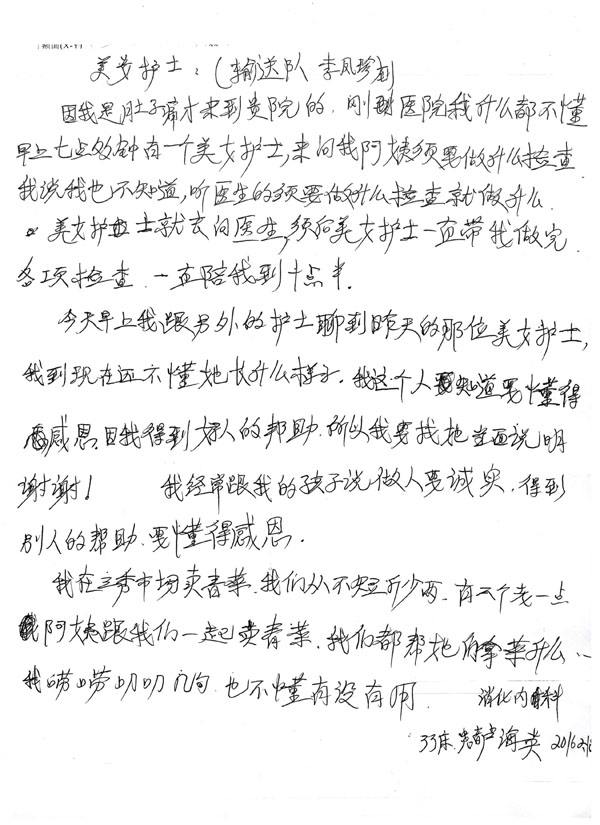 美女护士：（输送队 李凤珍）
因我是肚子痛才来到贵院的，刚到医院我什么都不懂
早上七点几钟有一个美女护士，来问我阿姨须要做什么检查
我说我也不知道，听医生的须要做什么检查就做什么
美女护士就去问医生，然后美女护士一直带我做完
各项检查，一直陪我到十点半。
今天早上我跟另外的护士聊到昨天的那位美女护士，
我到现在还不懂她长什么样子。我这个人知道要懂得
感恩，因我得到好人的帮助，所以我要找她当面说明
谢谢！ 我经常跟我的孩子说做人要诚实，得到
别人的帮助，要懂得感恩。
我在三秀市场卖青菜，我们从不短斤少两，有三个老一点
阿姨跟我们一起卖青菜，我们都帮她们拿菜什么…
我唠唠叨叨几句，也不懂有没有用。 消化内科
33床 卢海英